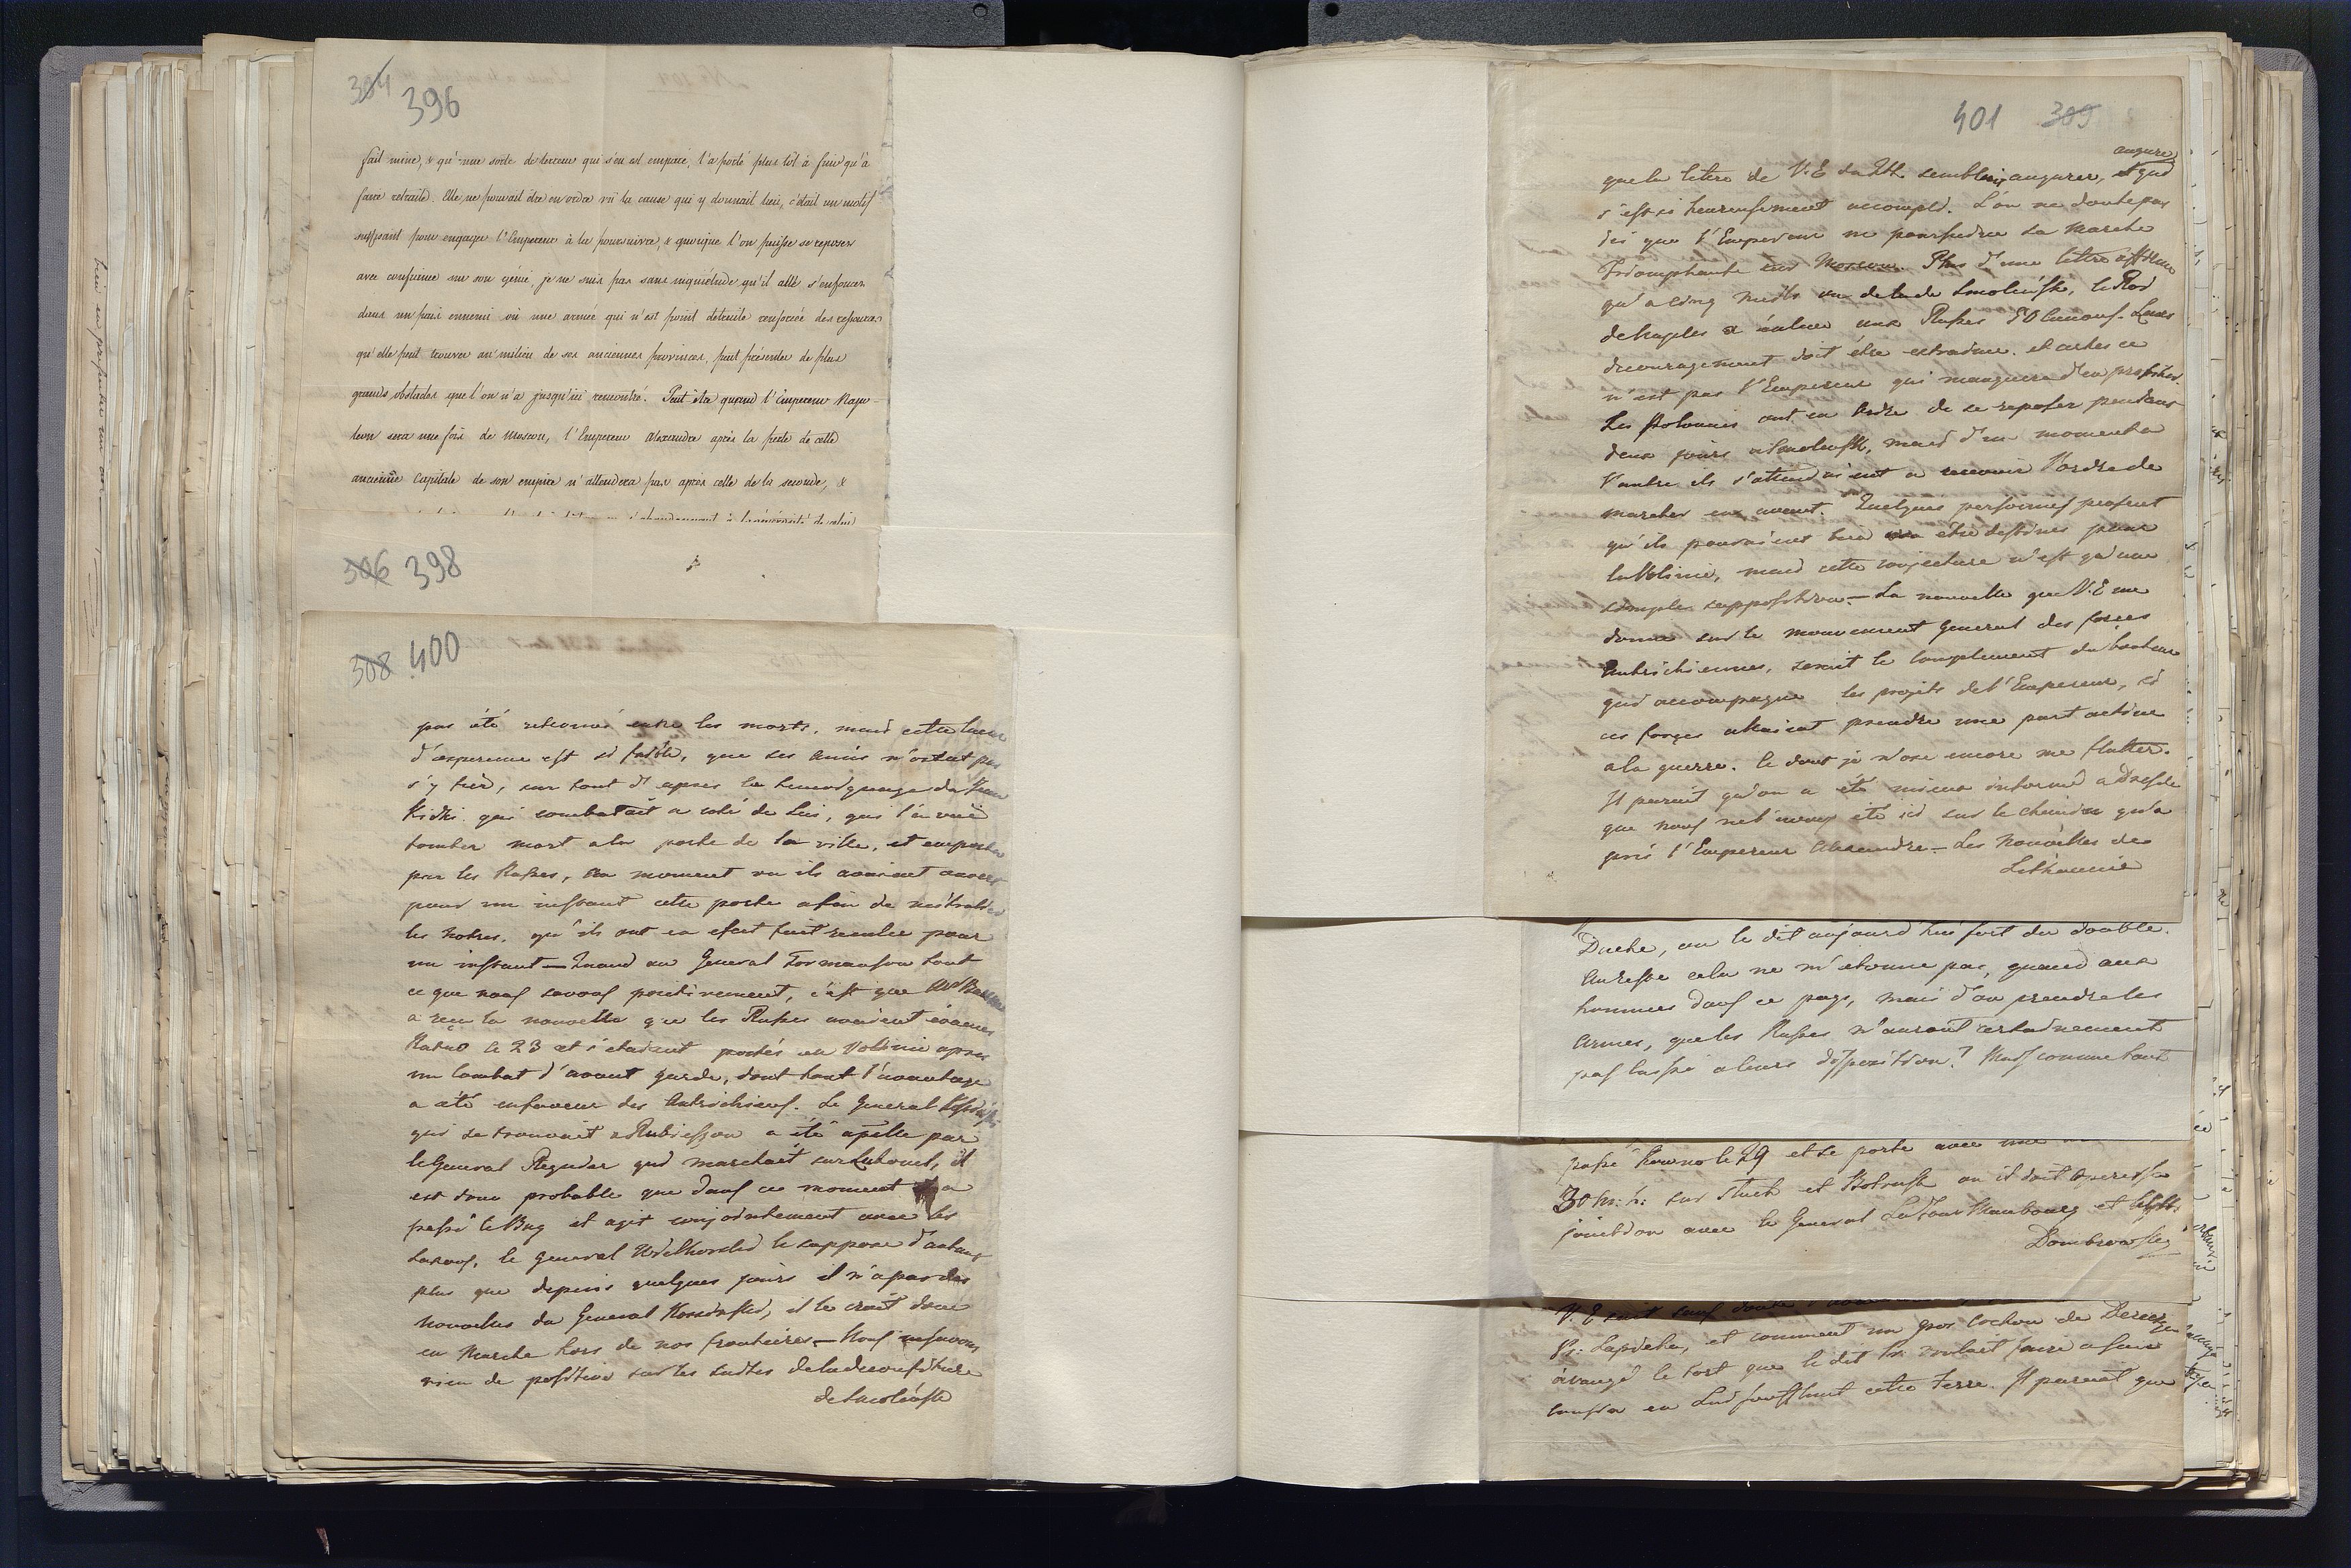 304 396
fait mine, & qu'une sorte de terreur qui s'en est emparé, l'a porté plus tôt à fuir qu'à
faire retraite. Elle ne pouvait être en ordre vu la cause qui y donnait lieu, c'était un motif
suffisant pour engager l'Empereur à la poursuivre, & quoique l'on puisse se reposer
avec confiance sur son génie, je ne suis pas sans inquiétude qu'il aille s'enfoncer
dans un pais ennemi où une armée qui n'est point detruite renforcée des ressources
qu'elle peut trouver au milieu de ses anciennes provinces, peut présenter de plus
grands obstacles que l'on n'a jusqu'ici rencontré. Peut être quand l'Empereur Napo-
leon sera une fois de Moscou, l'Empereur Alexandre après la perte de cette
ancienne Capitale de son empire n'attendera pas après celle de la seconde, &
306 398
308 400
pas été retrouvé entre les morts, mais cette lueur
d'esperence est si faible, que ses amis n'osent pas
s'y fier, sur tout d'apres le temoignage de
Kicki qui combatait a coté de lui, qui l'a vuë
tomber mort a la porte de la ville, et emporter
par les Russes, au moment ou ils avaient ouvert
pour un instant cette porte afin de
les notres, qu'ils ont en efait fait reculer pour
un instant — Quand au General Tormansow tout
ce que nous savons positivement, c'est que
a reçu la nouvelle que les Russes avaient évacués
Ratno le 23 et s'etaient portés en Volinie apres
un Combat d'avant garde, dont tout l'avantage
a été enfaveur des Autrichiens. Le General Kosinski
qui se trouvait a Rubieszow a été apelle par
le General Regnier qui marchait sur Luboml, il
est donc probable que dans ce moment il a
passé le Bug et agit conjointement avec les
Saxons, le General Wielhorski le suppose d'autant
plus que depuis quelques jours il n'a pas des
nouvelles du General Kosinski, il le croit donc
en Marche hors de nos frontieres — Nous ne savons
rien de positive sur les suites de la deconfiture
de Smolensk
401 309
que la lettre de V.E du semblait augurer, et qui
augure
s'est si heureusement accompli. L'on ne doute pas
ici que l'Empereur ne poursuive sa Marche
Triomphante sur Moscou. Plus d'une lettre assure
qu'a cinq milles au dela de Smolensk, le Roi
de Naples a enleve aux Russes 50 Canons. Leurs
decouragement doit être extreme. et certes ce
n'est pas l'Empereur qui manquera d'en profiter.
Les Polonais ont eu ordre de se reposer pendant
deux jours a Smolensk, mais d'un moment a
l'autre ils s'attendaient a recevoir l'ordre de
marcher en avant. Quelques personnes pensent
qu'ils pouraient bien être destinés pour
la Volinie, mais cette conjecture n'est qu'une
simple supposition — La nouvelle que V.E me
donne sur le mouvement general des forces
Autrichiennes, serait le complement du bonheur
qui accompagne les projets de l'Empereur, si
ces forces allaient prendre une part active
a la guerre. Ce dont je n'ose encore me flatter.
Il parait qu'on a été mieux informé a Dresde
que nous ne l'avons été ici sur le chemin qu'a
pris l'Empereur Alexandre — Les nouvelles de
Lithuanie
Duché, on le dit aujourd'hui fort du double.
Aureste cela ne m'etonne pas, quand aux
hommes dans ce pays, mais d'ou prendre les
armes, que les Russes n'auront certainement
pas laissé a leurs disposition? Mais comme tout
passé Kowno le 29 et se porte avec
30 m: h: sur Sluck et Bobrusk ou il doit operer sa
jonction avec le General Latour Maubourg et
Dombrowski
V. E sait sans doute
Pr: Sapieha, et comment un gros Cochon de
a vangé le tort que le dit Pr: voulait faire a son
Cousin en Lui soufflant cette terre. Il parait que